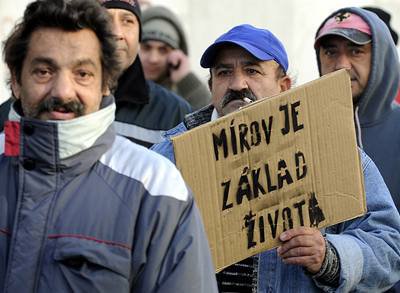 MÍROV JE
ZÁKLAD
ŽIVOTA